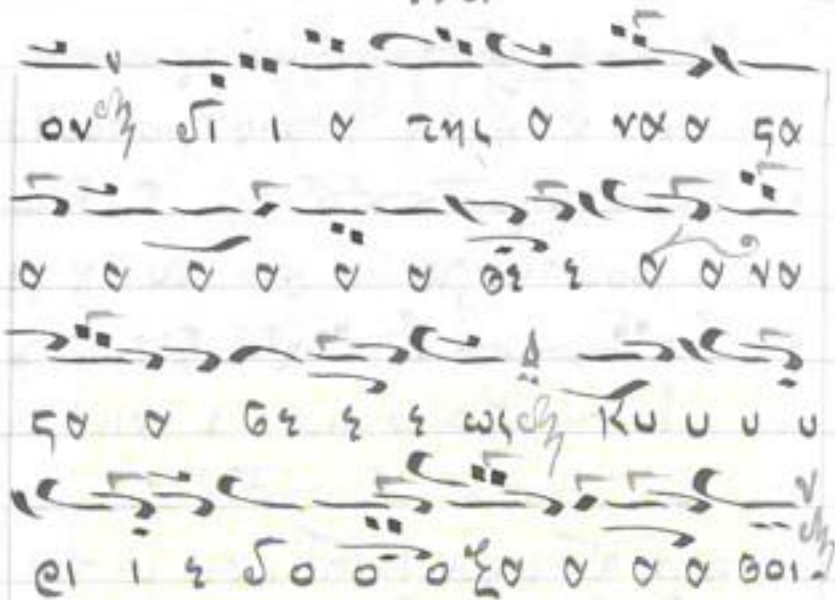 ον δι ι α της α να α ϛα
α α α α α α θε ε α α να
ϛα α σε ε ε ως Κυ υ υ υ
ρι ι ε δο ο ο ξα α α α σοι